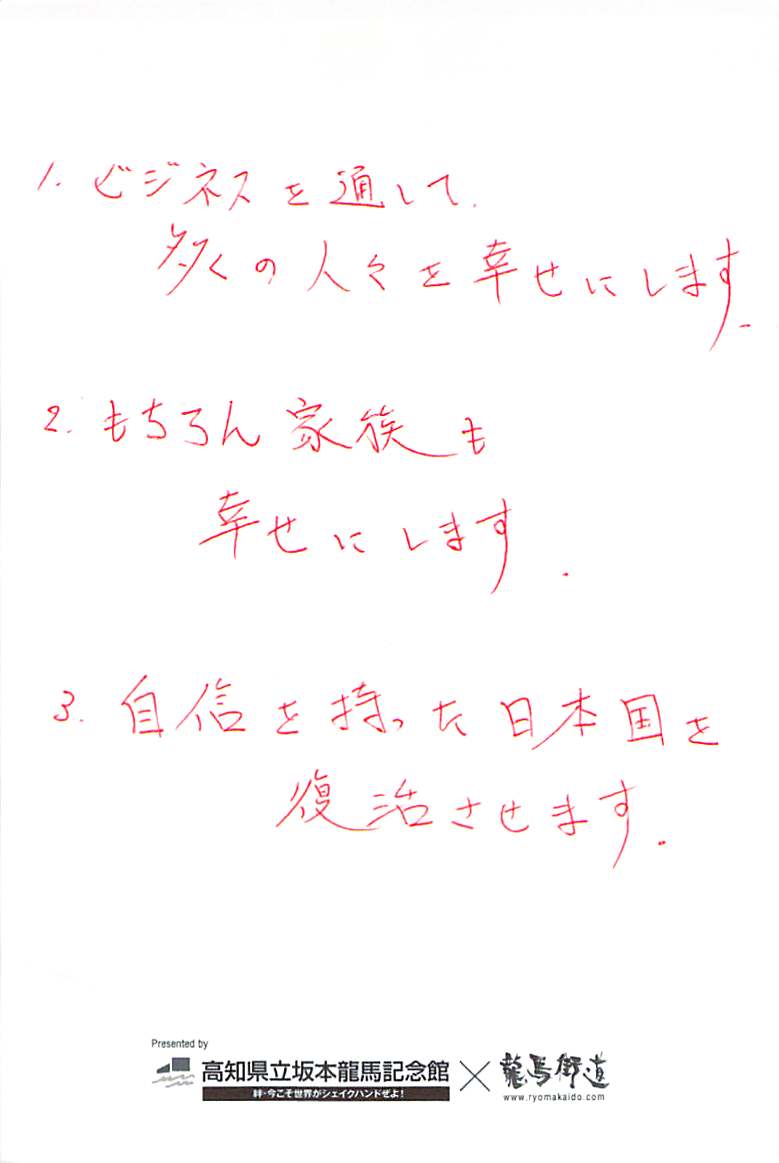 1. ビジネスを通して.
多くの人々を幸せにします.
2. もちろん家族も
幸せにします.
3. 自信を持った日本国を
復活させます.
Presented by
高知県立坂本龍馬記念館 × 龍馬街道
絆・今こそ世界がシェイクハンドぜよ!
www.ryomakaido.com